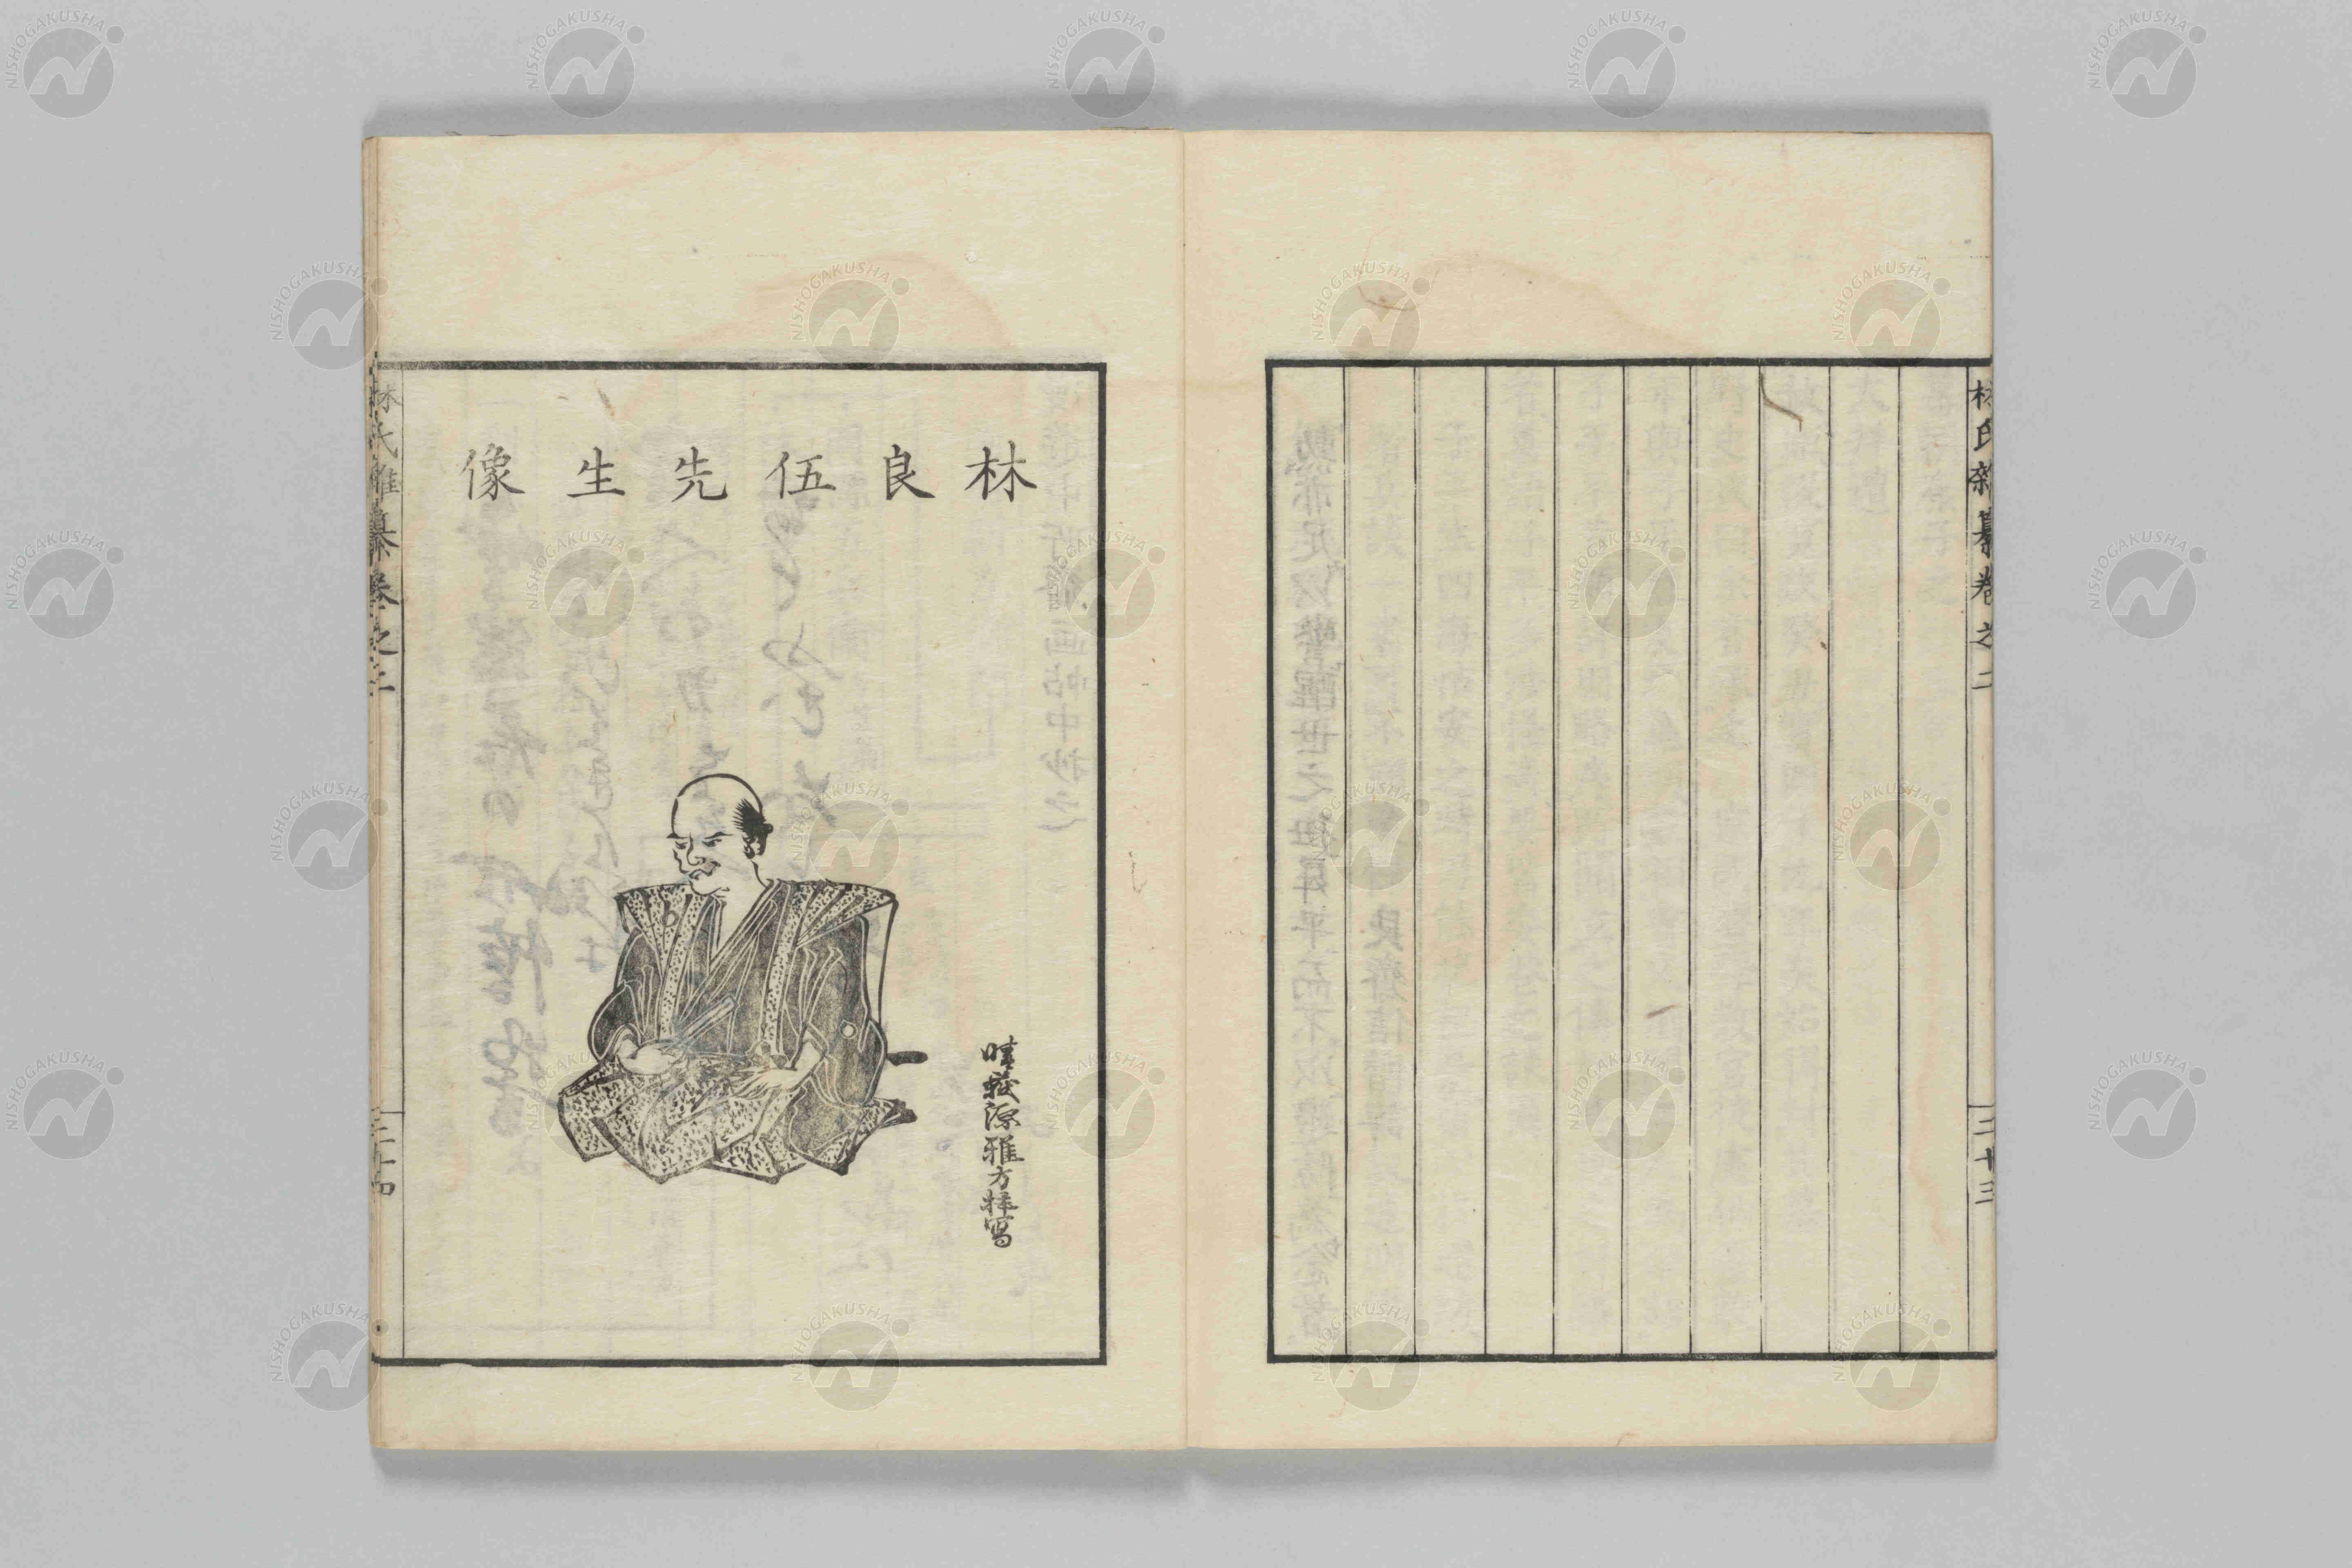 林氏雑纂巻之二
三十三
林良伍先生像
晴嶽源雅方拝寫
林氏雑纂巻之二
三十四
NISHOGAKUSHA